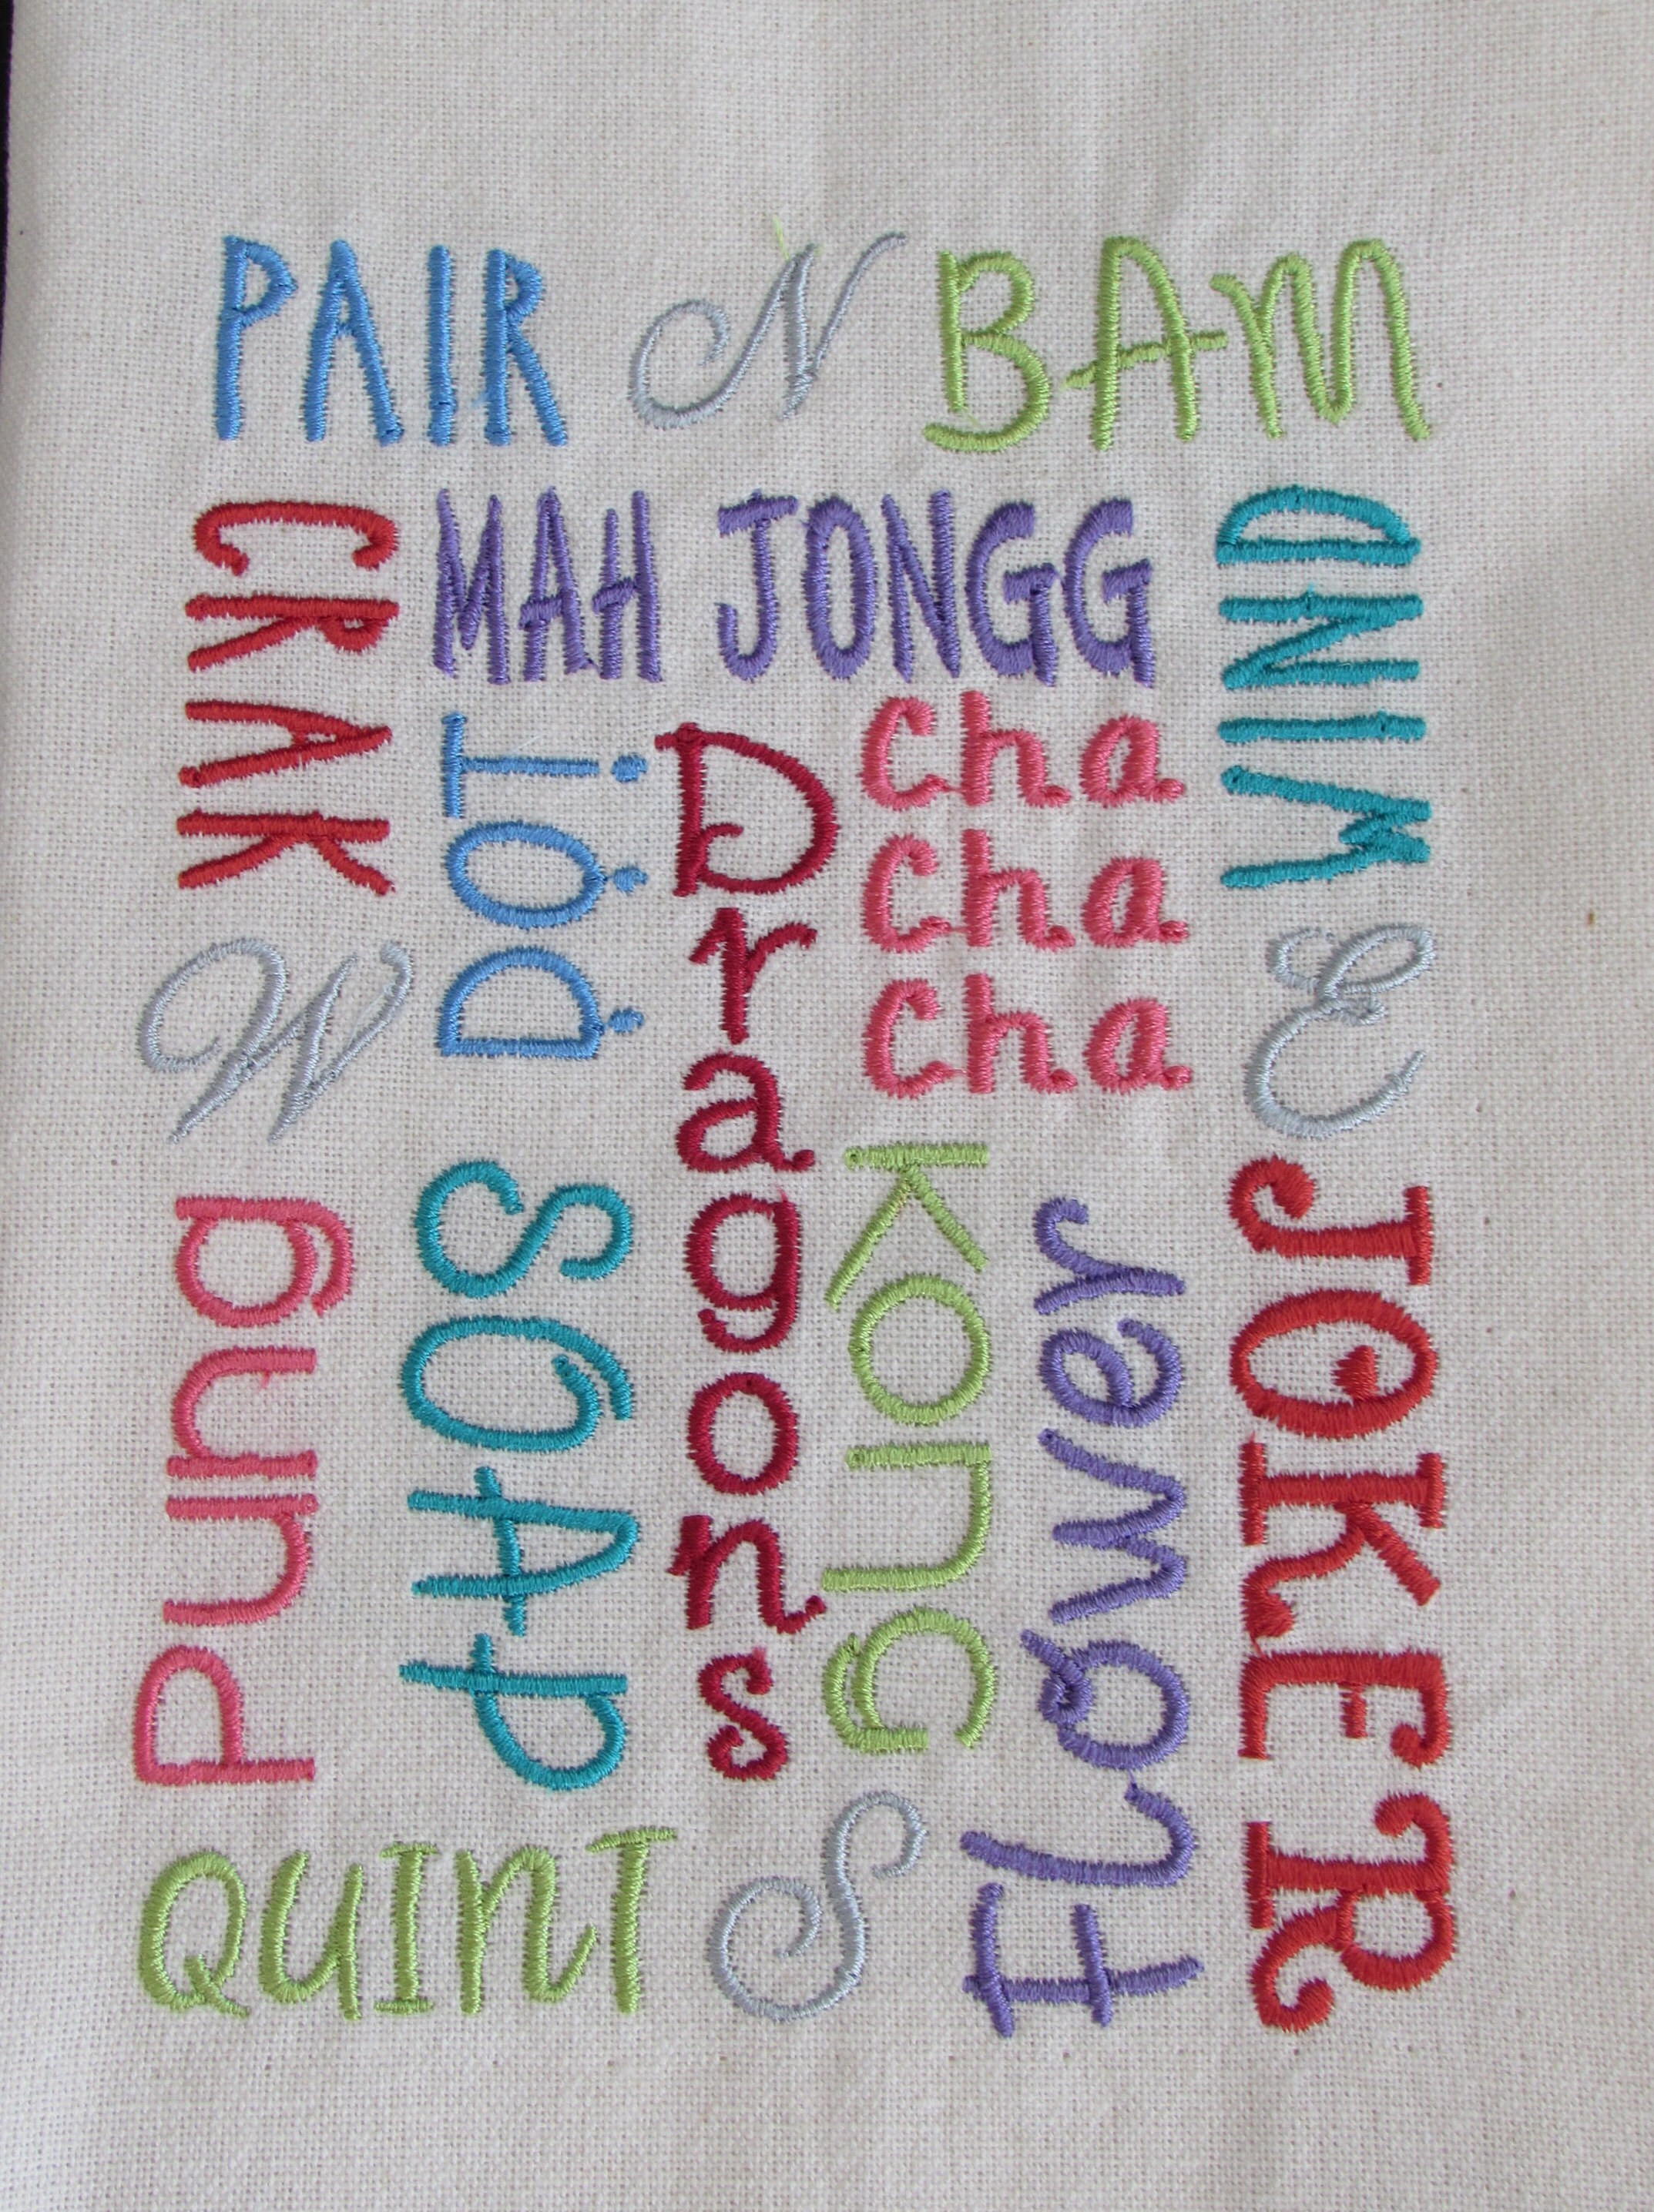 PAIR N BAM
CRAK
MAH JONGG
WIND
DOT
Dragons
cha
cha
cha
W
E
Pung
SOAP
Kong
Flower
JOKER
QUINT
S